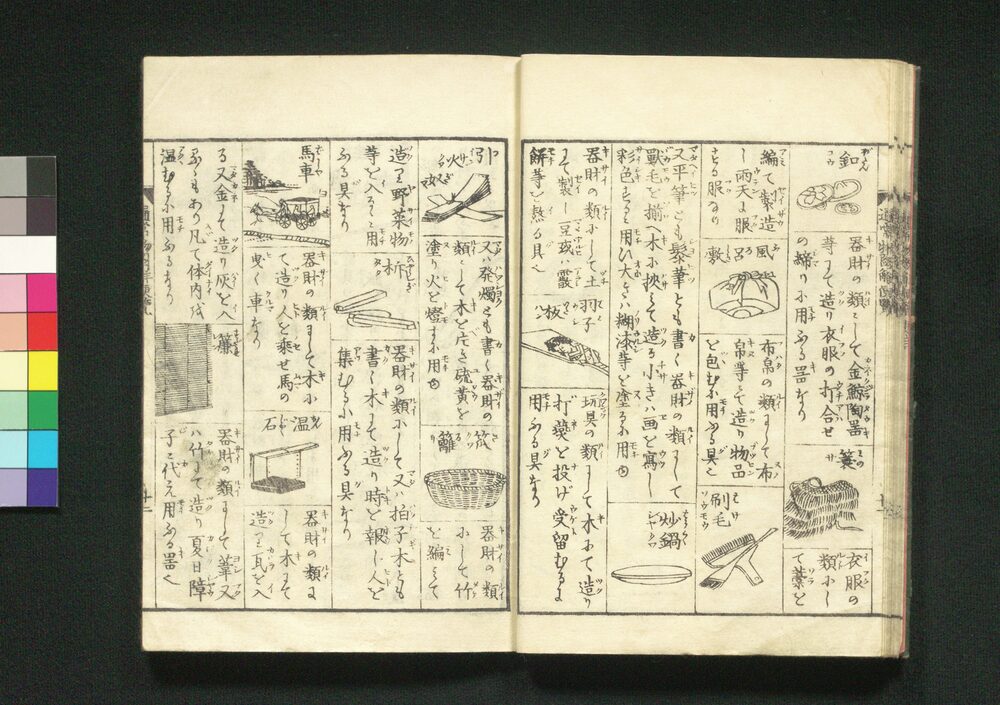 釦
器財の類にして金鯨陶器
等にて造り衣服の打合せ
の締りに用ふる器なり
簑
衣服の
類にし
て藁を
編て製造
し雨天に服
する服なり
風呂敷
布帛の類にして布
帛等にて造り物品
を包むに用ふる具也
刷毛
又平筆とも髹筆とも書く器財の類にして
獣毛を揃へ木に挾みて造る小さきハ画を寫し
彩色するに用ひ大なるハ糊漆等を塗るに用ゆ
炒鍋
器財の類にして土
にて製し豆或ハ霰
餅等を熬る具也
羽子板
玩具の類にして木にて造り
打羮を投げ受留むるに
用ふる具なり
引火奴
又発燭とも書く器財の
類にして木を片き硫黄を
塗り火を燈すに用ゆ
笊籬
器財の類
にして竹
を編みて
造り野菜物
等を入るゝに用
ふる具なり
柝
器財の類にして又ハ拍子木とも
書く木にて造り時を報じ人を
集むるに用ふる具なり
馬車
器財の類にして木に
て造り人を乗せ馬の
曳く車なり
温石
器財の類に
して木にて
造り瓦を入
る又金にて造り灰を入
るゝもあり凡て体内を
温むるに用ふるなり
簾
器財の類にして葦又
ハ竹にて造り夏日障
子に代え用ふる器也